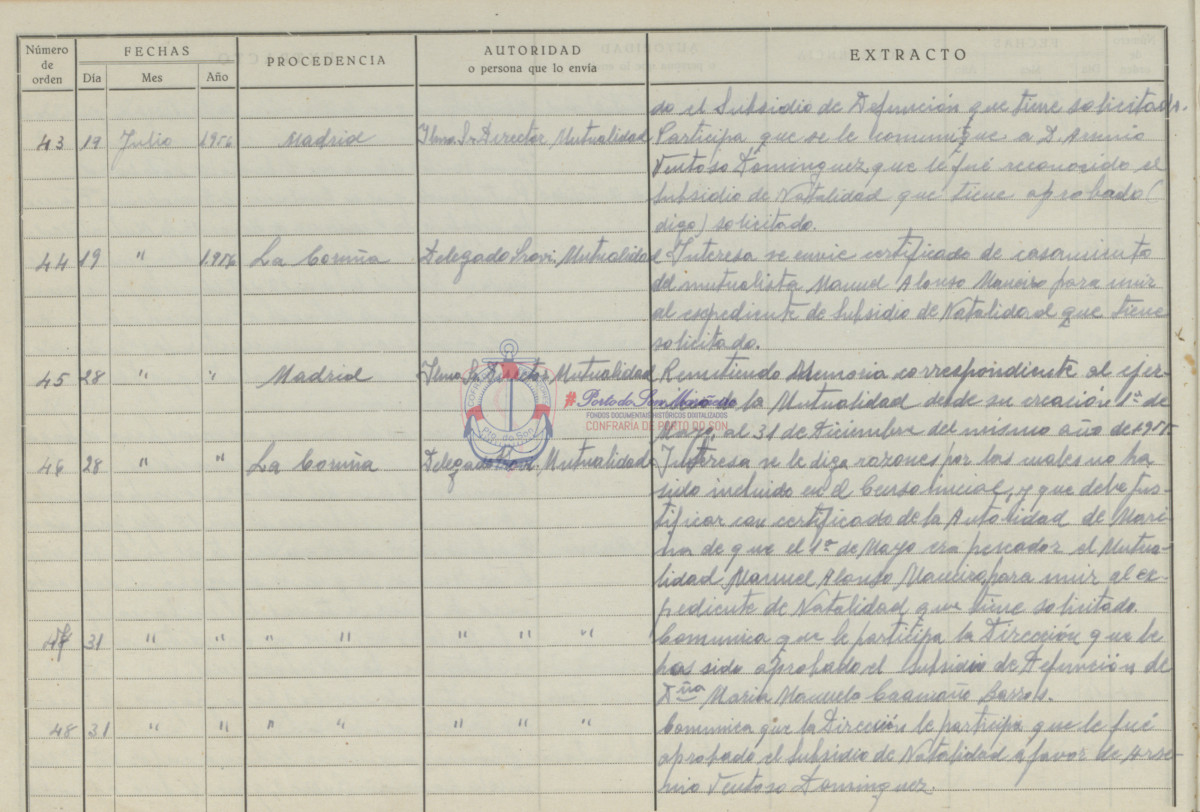 Número de orden
FECHAS
Día Mes Año
PROCEDENCIA
AUTORIDAD
o persona que lo envía
EXTRACTO
do el Subsidio de Defunción que tiene solicitado.
43 19 Julio 1.956 Madrid Ilmo. Sr. Director Mutualidad Participa que se le comunique a D. Arsenio
Ventoso Dominguez, que le fué reconocido el
Subsidio de Natalidad que tiene aprobado (
digo) solicitado.
44 19 " 1.956 La Coruña Delegado Provi. Mutualidad Interesa se envie certificado de casamiento
del mutualista Manuel Alonso Maneiro para unir
al expediente de Subsidio de Natalidad que tiene
solicitado.
45 28 " " Madrid Ilmo. Sr. Director Mutualidad Remitiendo Memoria correspondiente al ejer-
de la Mutualidad desde su creación 1º de
Mayo, al 31 de Diciembre del mismo año de
46 28 " " La Coruña Delegado Provi. Mutualidad Interesa se le diga razones por las cuales no ha
sido incluido en el Censo inicial, y que debe jus-
tificar con certificado de la Autolidad de Mari
na de que el 1º de Mayo era pescador el Mutua-
lidad Manuel Alonso Maneiro, para unir al ex-
pediente de Natalidad que tiene solicitado.
47 31 " " " " " " " Comunica que le participa la Dirección que le
has sido aprobado el Subsidio de Defunción de
Dña Maria Manuela Caamaño
48 31 " " " " " " " Comunica que la Dirección le participa que le fué
aprobado el Subsidio de Natalidad a favor de Arse-
nio Ventoso Dominguez.
#Porto do Son Mariñeiro
FONDOS DOCUMENTAIS HISTÓRICOS DIGITALIZADOS
CONFRARÍA DE PORTO DO SON